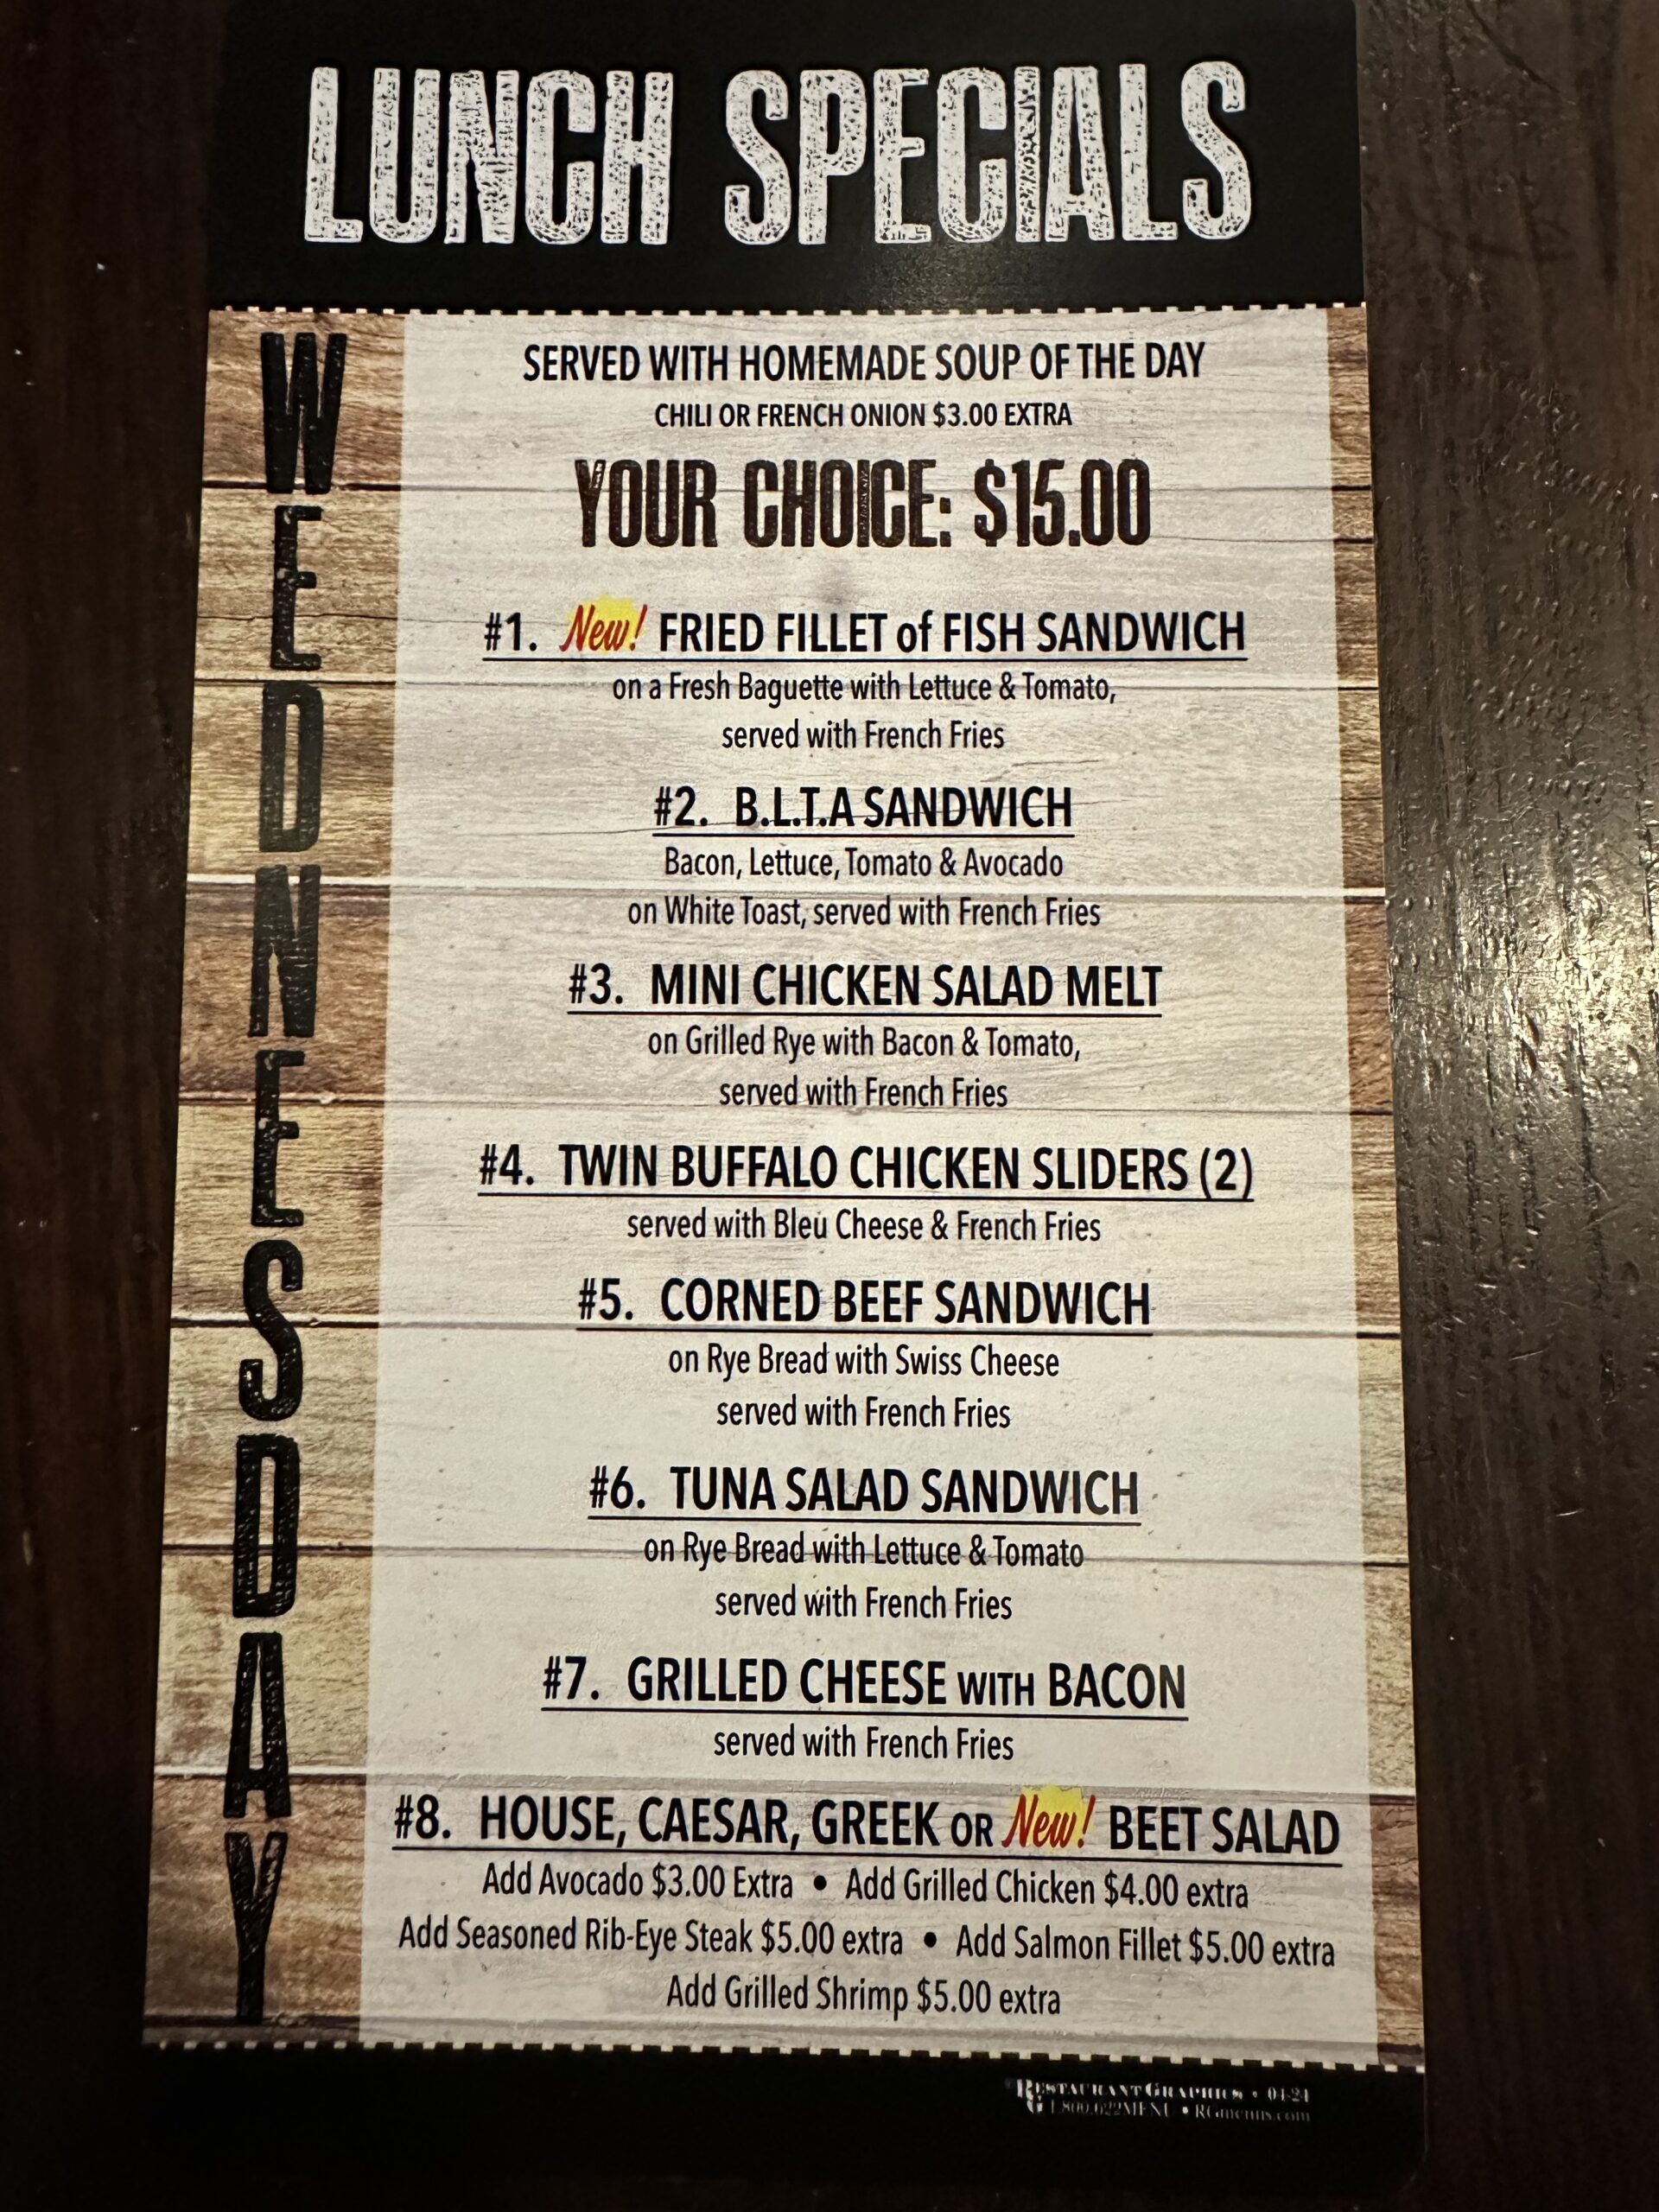 LUNCH SPECIALS
WEDNESDAY
SERVED WITH HOMEMADE SOUP OF THE DAY
CHILI OR FRENCH ONION $3.00 EXTRA
YOUR CHOICE: $15.00
#1. New! FRIED FILLET of FISH SANDWICH
on a Fresh Baguette with Lettuce & Tomato,
served with French Fries
#2. B.L.T.A SANDWICH
Bacon, Lettuce, Tomato & Avocado
on White Toast, served with French Fries
#3. MINI CHICKEN SALAD MELT
on Grilled Rye with Bacon & Tomato,
served with French Fries
#4. TWIN BUFFALO CHICKEN SLIDERS (2)
served with Bleu Cheese & French Fries
#5. CORNED BEEF SANDWICH
on Rye Bread with Swiss Cheese
served with French Fries
#6. TUNA SALAD SANDWICH
on Rye Bread with Lettuce & Tomato
served with French Fries
#7. GRILLED CHEESE WITH BACON
served with French Fries
#8. HOUSE, CAESAR, GREEK OR New! BEET SALAD
Add Avocado $3.00 Extra • Add Grilled Chicken $4.00 extra
Add Seasoned Rib-Eye Steak $5.00 extra • Add Salmon Fillet $5.00 extra
Add Grilled Shrimp $5.00 extra
RESTAURANT GRAPHICS • 04-24
1.800.622MENU • RGmenus.com